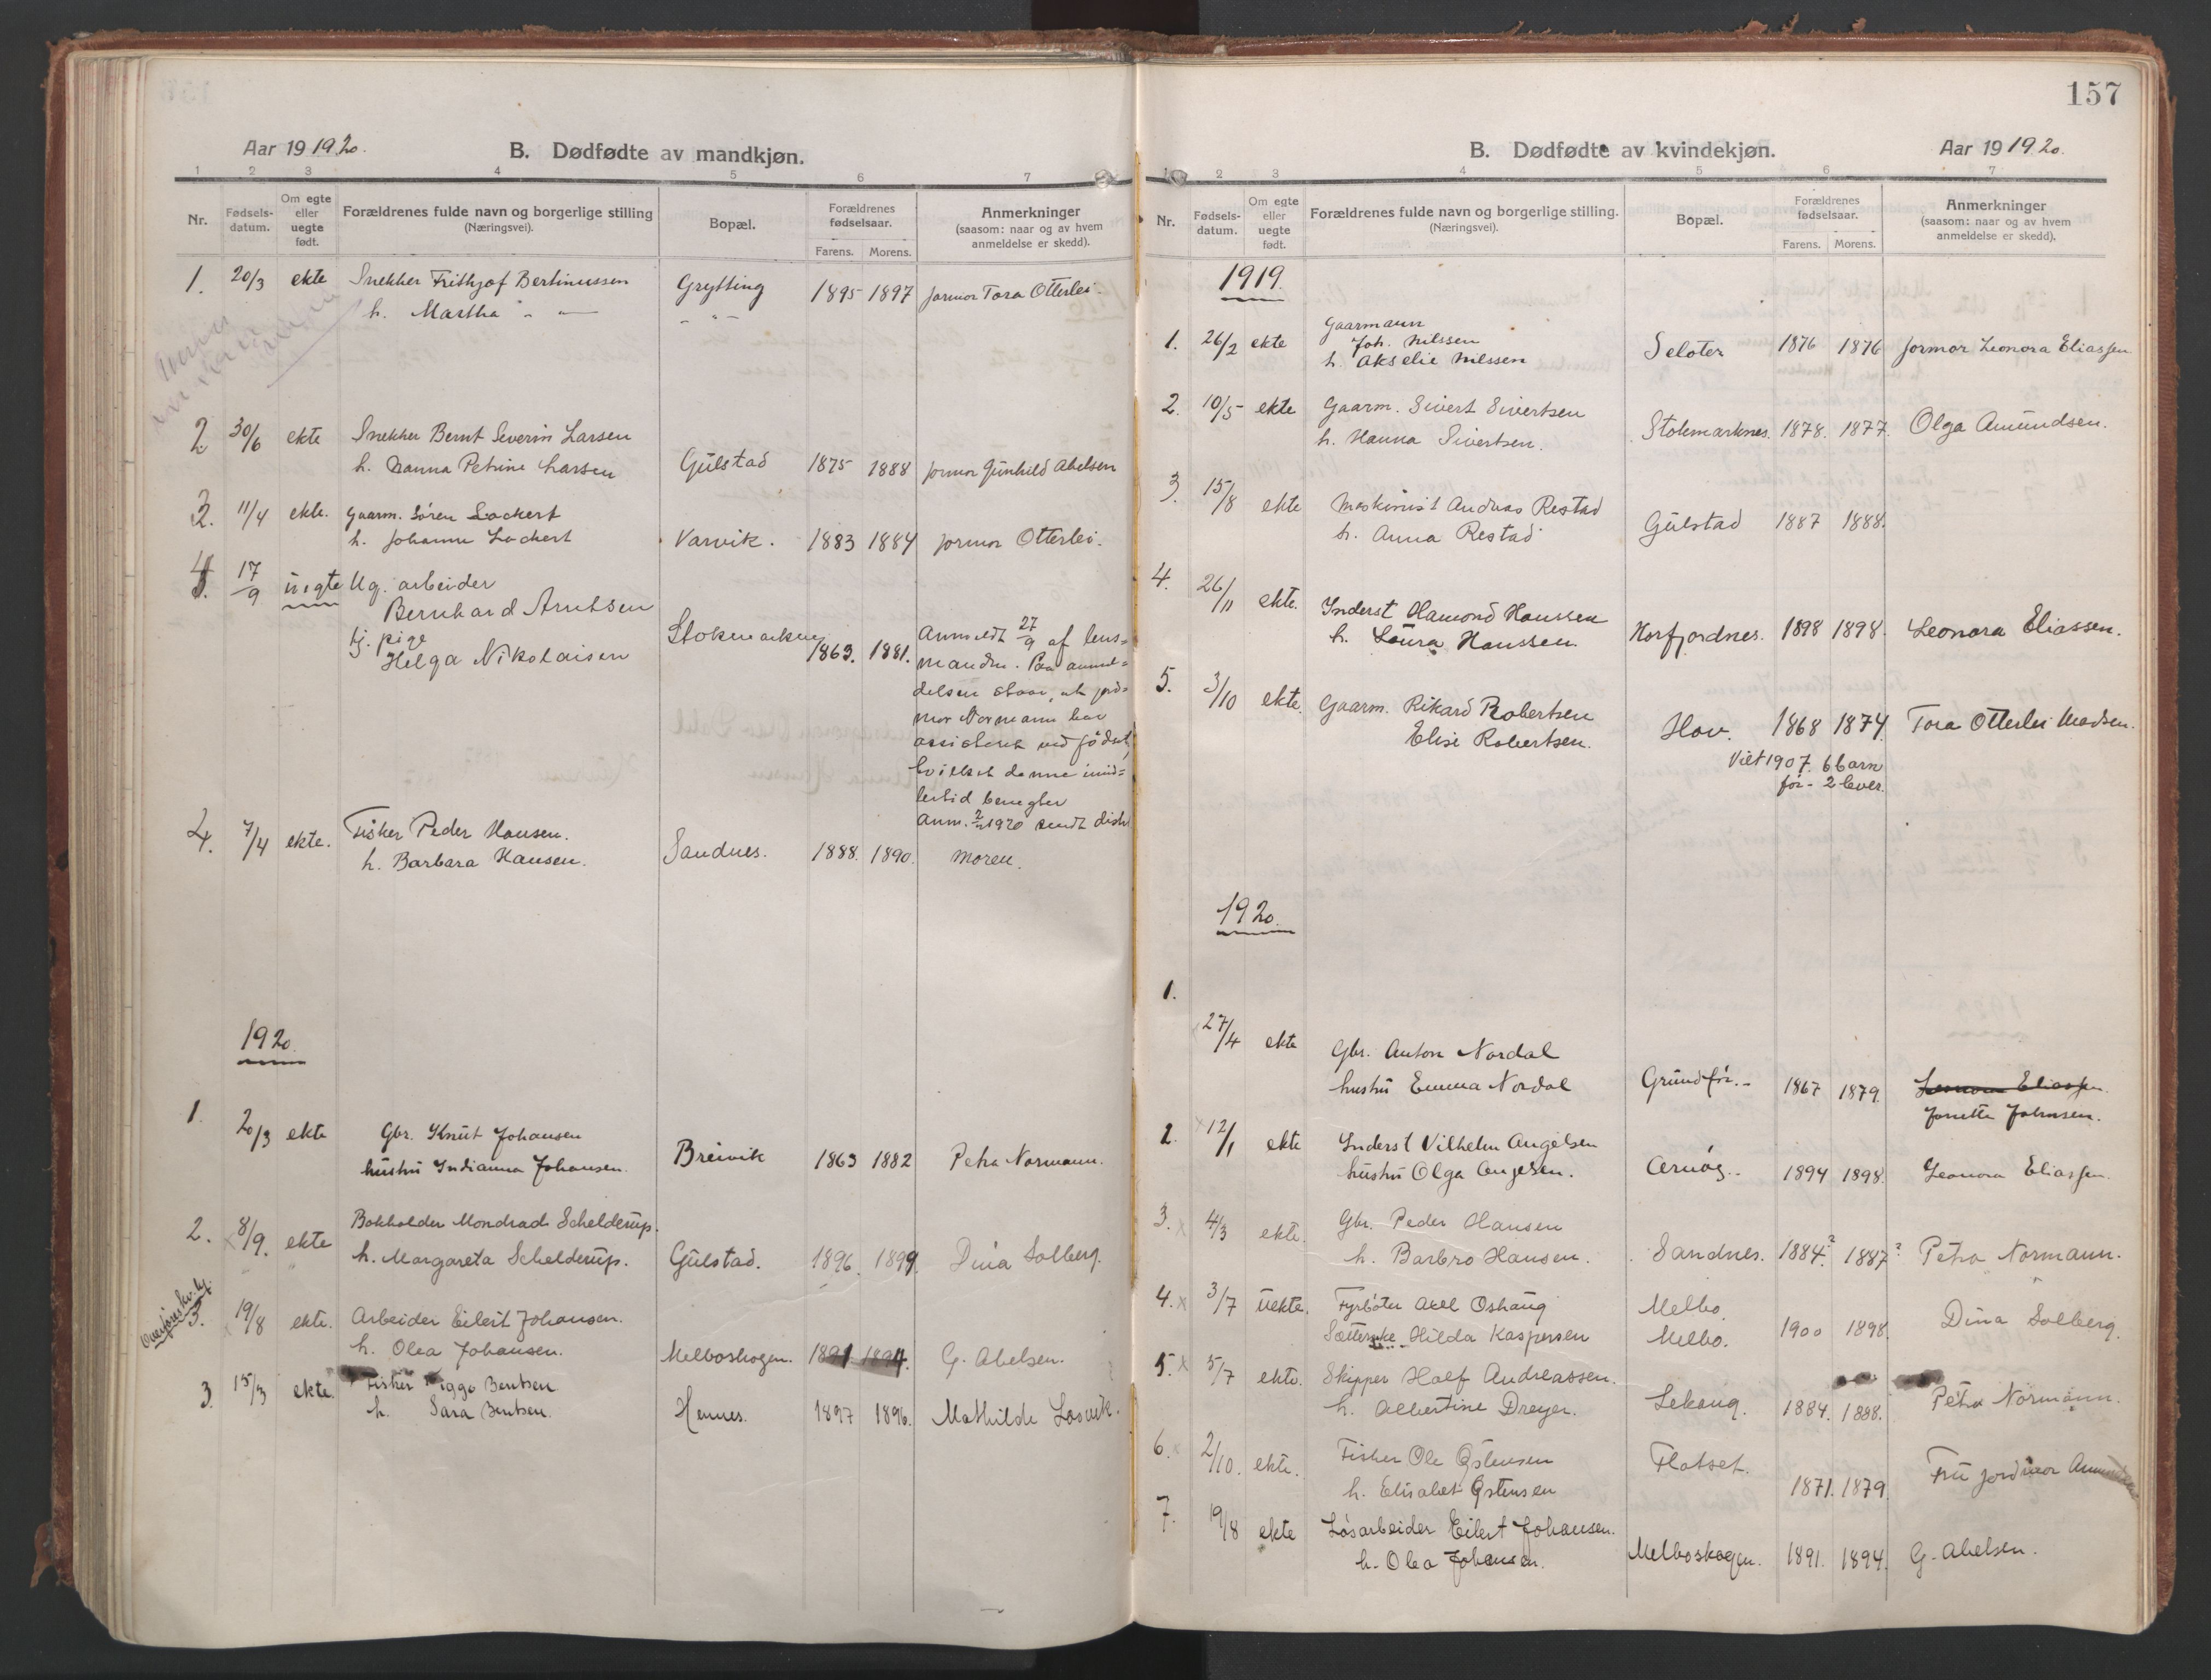 157
Aar 1919.20.
B. Dødfødte av mandkjøn.
1 2 3 4 5 6 7
Nr.
Fødsels-
datum.
Om egte
eller
uegte
født.
Forældrenes fulde navn og borgerlige stilling
(Næringsvei).
Bopæl.
Forældrenes
fødselsaar.
Farens. Morens.
Anmerkninger
(saasom: naar og av hvem
anmeldelse er skedd).
1. 20/3 ekte Snekker Frithjof Bertinussen Grytting 1895 1897 jormor Tora Otterlei.
h. Martha " — " "
2 30/6 ekte Snekker Bernt Severin Larsen
h. Nanna Petrine Larsen Gulstad 1875 1888 jormor Gunhild Abelsen
3. 11/4 ekte. Gaarm. Søren Lockert
h. Johanne Lockert Varvik. 1883 1884 jormor Otterlei.
4. 17/9 uegte Ug. arbeider
Bernhard Arntsen
tj. pige
Helga Nikolaisen Stokmarknes 1863. 1881.
Anmeldt 27/9 af lens=
manden. Paa anmel=
delsen staar, at jord=
mor Normann har
assisteret ved fødsel,
hvilket denne imid=
lertid benegter
4. 7/4 ekte. Fisker Peder Hansen.
h. Barbara Hansen. Sandnes. 1888. 1890. moren.
1920.
1. 20/3 ekte Gbr. Knut Johansen
hustru Indianna Johansen. Breivik 1863 1882 Petra Normann.
2. 8/9. ekte Bokholder Mondrad Schelderup.
h. Margareta Schelderup. Gulstad. 1896. 1899. Dina Solberg.
Overføres kv. kj.
3. 19/8 ekte. Arbeider Eilert Johansen.
h. Olea Johansen. Melboskogen. 1891 1894. G. Abelsen.
3. 15/3 ekte. Fisker Viggo Bentsen
h. Sara Bentsen. Hennes. 1897 1896. Mathilde Losvik.
B. Dødfødte av kvindekjøn.
Aar 1919.20.
1 2 3 4 5 6 7
Nr.
Fødsels-
datum.
Om egte
eller
uegte
født.
Forældrenes fulde navn og borgerlige stilling.
(Næringsvei).
Bopæl.
Forældrenes
fødselsaar.
Farens. Morens.
Anmerkninger
(saasom: naar og av hvem
anmeldelse er skedd).
1919.
1. 26/2 ekte Gaarmann
Joh. Nilssen
h. Akselie Nilssen Seloter 1876 1876 jormor Leonora Eliassen
2. 10/5 ekte Gaarm. Sivert Sivertsen
h. Hanna Sivertsen. Stokmarknes. 1878. 1877. Olga Amundsen.
3. 15/8 ekte Maskinist Andreas Restad
h. Anna Restad Gulstad 1887 1888.
4. 26/11 ekte. Inderst Hamond Hanssen
h. Laura Hanssen. Horfjordnes. 1898 1898. Leonora Eliassen.
5. 3/10 ekte. Gaarm. Rikard Robertsen
Elise Robertsen. Hov. 1868 1874. Tora Otterlei Madsen.
Viet 1907. 6 barn
før - 2 lever.
1920.
1. 27/4 ekte Gbr. Anton Nordal
hustru Emma Nordal Grundfør. 1867 1879. Leonora Eliassen.
Jonette Johnsen.
2. 12/1 ekte Inderst Vilhelm Angelsen
hustru Olga Angelsen. Arnøy. 1894 1898. Leonora Eliassen.
3. 4/3 ekte. Gbr. Peder Hansen
h. Barbro Hansen. Sandnes. 1884? 1887? Petra Normann.
4. 3/7 uekte. Fyrbøter Axel Oshaug Melbo
Hilda Kaspersen Melbo. 1900 1898. Dina Solberg.
5. 5/7 ekte. Skipper Half Andreassen.
h. Albertine Dreyer. Lekang. 1884. 1888. Petra Normann.
6. 2/10. ekte. Fisker Ole Østensen Flatset.
h. Elisabet Østensen 1871. 1879. Fru jordmor Amundsen
7. 19/8 ekte Løsarbeider Eilert Johansen.
h. Olea Johansen. Melboskogen. 1891. 1894. G. Abelsen.